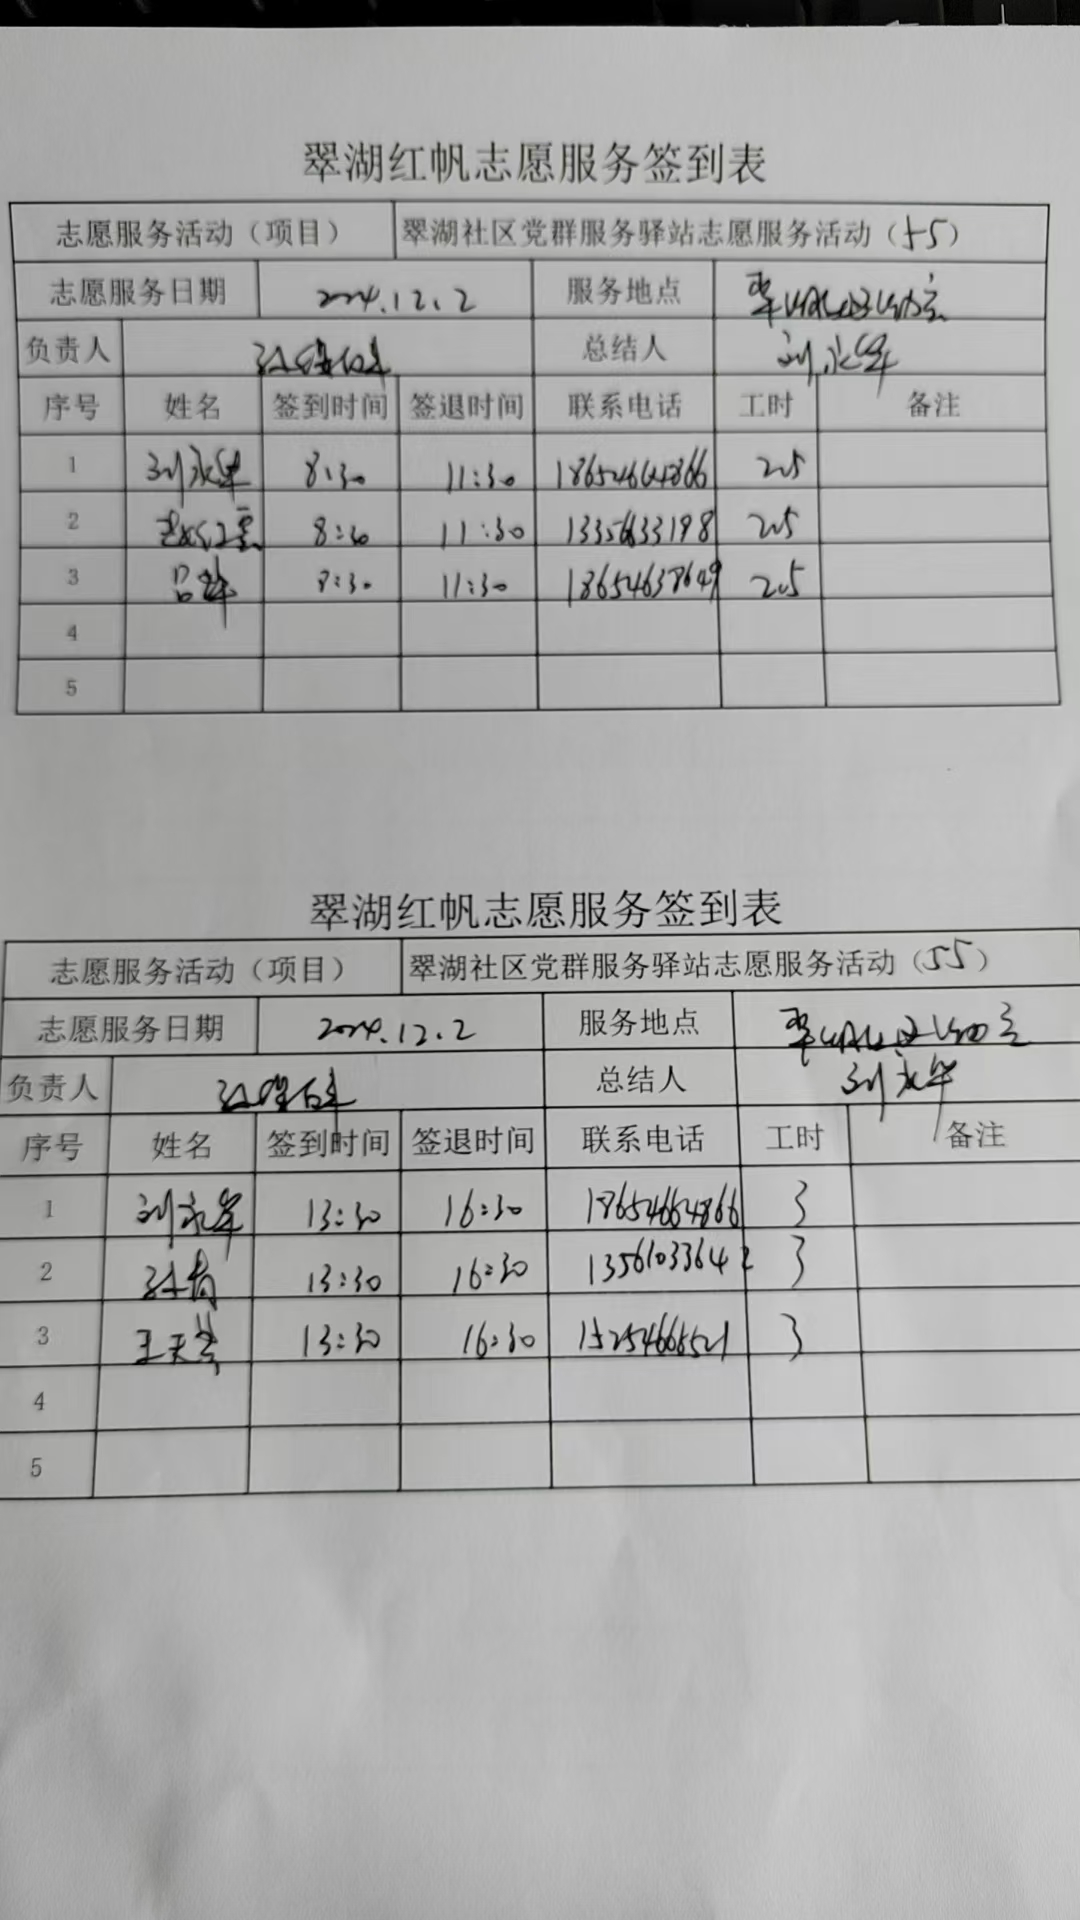 翠湖红帆志愿服务签到表
志愿服务活动（项目） 翠湖社区党群服务驿站志愿服务活动（55）
志愿服务日期 2024.12.2 服务地点
负责人 总结人 刘永军
序号 姓名 签到时间 签退时间 联系电话 工时 备注
1 刘永军 8:30 11:30 18654664866 2.5
2 8:30 11:30 2.5
3 8:30 11:30 18654638649 2.5
4
5
翠湖红帆志愿服务签到表
志愿服务活动（项目） 翠湖社区党群服务驿站志愿服务活动（55）
志愿服务日期 2024.12.2 服务地点
负责人 总结人 刘永军
序号 姓名 签到时间 签退时间 联系电话 工时 备注
1 刘永军 13:30 16:30 18654664866 3
2 13:30 16:30 13561033642 3
3 13:30 16:30 15254666521 3
4
5